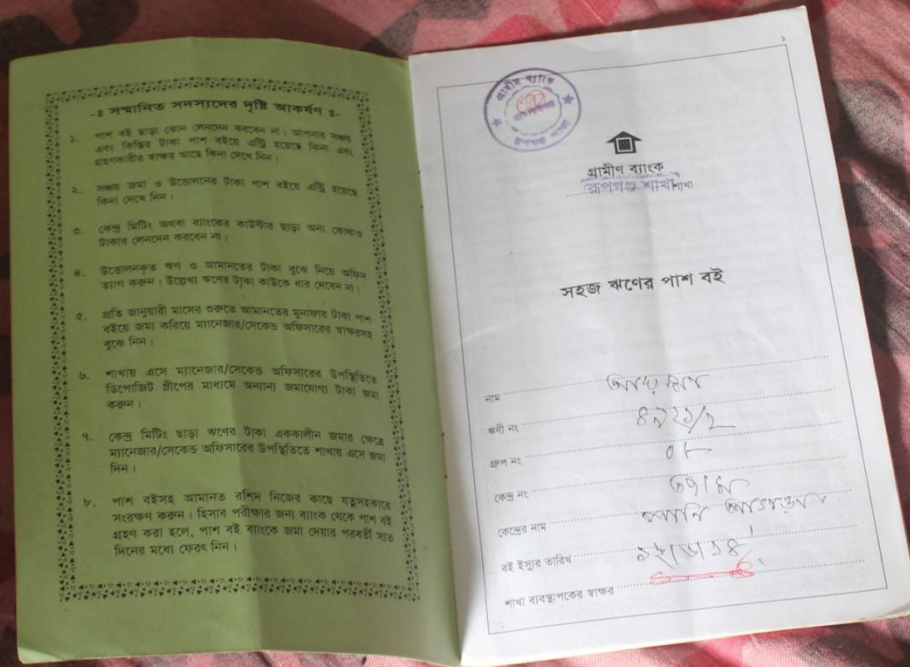 -ঃ সম্মানিত সদস্যদের দৃষ্টি আকর্ষণ ঃ-
১. পাশ বই ছাড়া কোন লেনদেন করবেন না। আপনার সঞ্চয়
এবং কিস্তির টাকা পাশ বইয়ে এন্ট্রি হয়েছে কিনা এবং
গ্রহণকারীর স্বাক্ষর আছে কিনা দেখে নিন।
২. সঞ্চয় জমা ও উত্তোলনের টাকা পাশ বইয়ে এন্ট্রি হয়েছে
কিনা দেখে নিন।
৩. কেন্দ্র মিটিং অথবা ব্যাংকের কাউন্টার ছাড়া অন্য কোথাও
টাকার লেনদেন করবেন না।
৪. উত্তোলনকৃত ঋণ ও আমানতের টাকা বুঝে নিয়ে অফিস
ত্যাগ করুন। উল্লেখ্য ঋণের টাকা কাউকে ধার দেবেন না।
৫. প্রতি জানুয়ারী মাসের শুরুতে আমানতের মুনাফার টাকা পাশ
বইয়ে জমা করিয়ে ম্যানেজার/সেকেন্ড অফিসারের স্বাক্ষরসহ
বুঝে নিন।
৬. শাখায় এসে ম্যানেজার/সেকেন্ড অফিসারের উপস্থিতিতে
ডিপোজিট স্লীপের মাধ্যমে অন্যান্য জমাযোগ্য টাকা জমা
করুন।
৭. কেন্দ্র মিটিং ছাড়া ঋণের টাকা এককালীন জমার ক্ষেত্রে
ম্যানেজার/সেকেন্ড অফিসারের উপস্থিতিতে শাখায় এসে জমা
দিন।
৮. পাশ বইসহ আমানত রশিদ নিজের কাছে যত্নসহকারে
সংরক্ষণ করুন। হিসাব পরীক্ষার জন্য ব্যাংক থেকে পাশ বই
গ্রহণ করা হলে, পাশ বই ব্যাংকে জমা দেয়ার পরবর্তী সাত
দিনের মধ্যে ফেরৎ নিন।
১
গ্রামীণ ব্যাংক
গ্রামীণ ব্যাংক
রূপগঞ্জ শাখা শাখা
সহজ ঋণের পাশ বই
নাম
ঋণী নং
গ্রুপ নং ০৮
কেন্দ্র নং
কেন্দ্রের নাম
বই ইস্যুর তারিখ
শাখা ব্যবস্থাপকের স্বাক্ষর